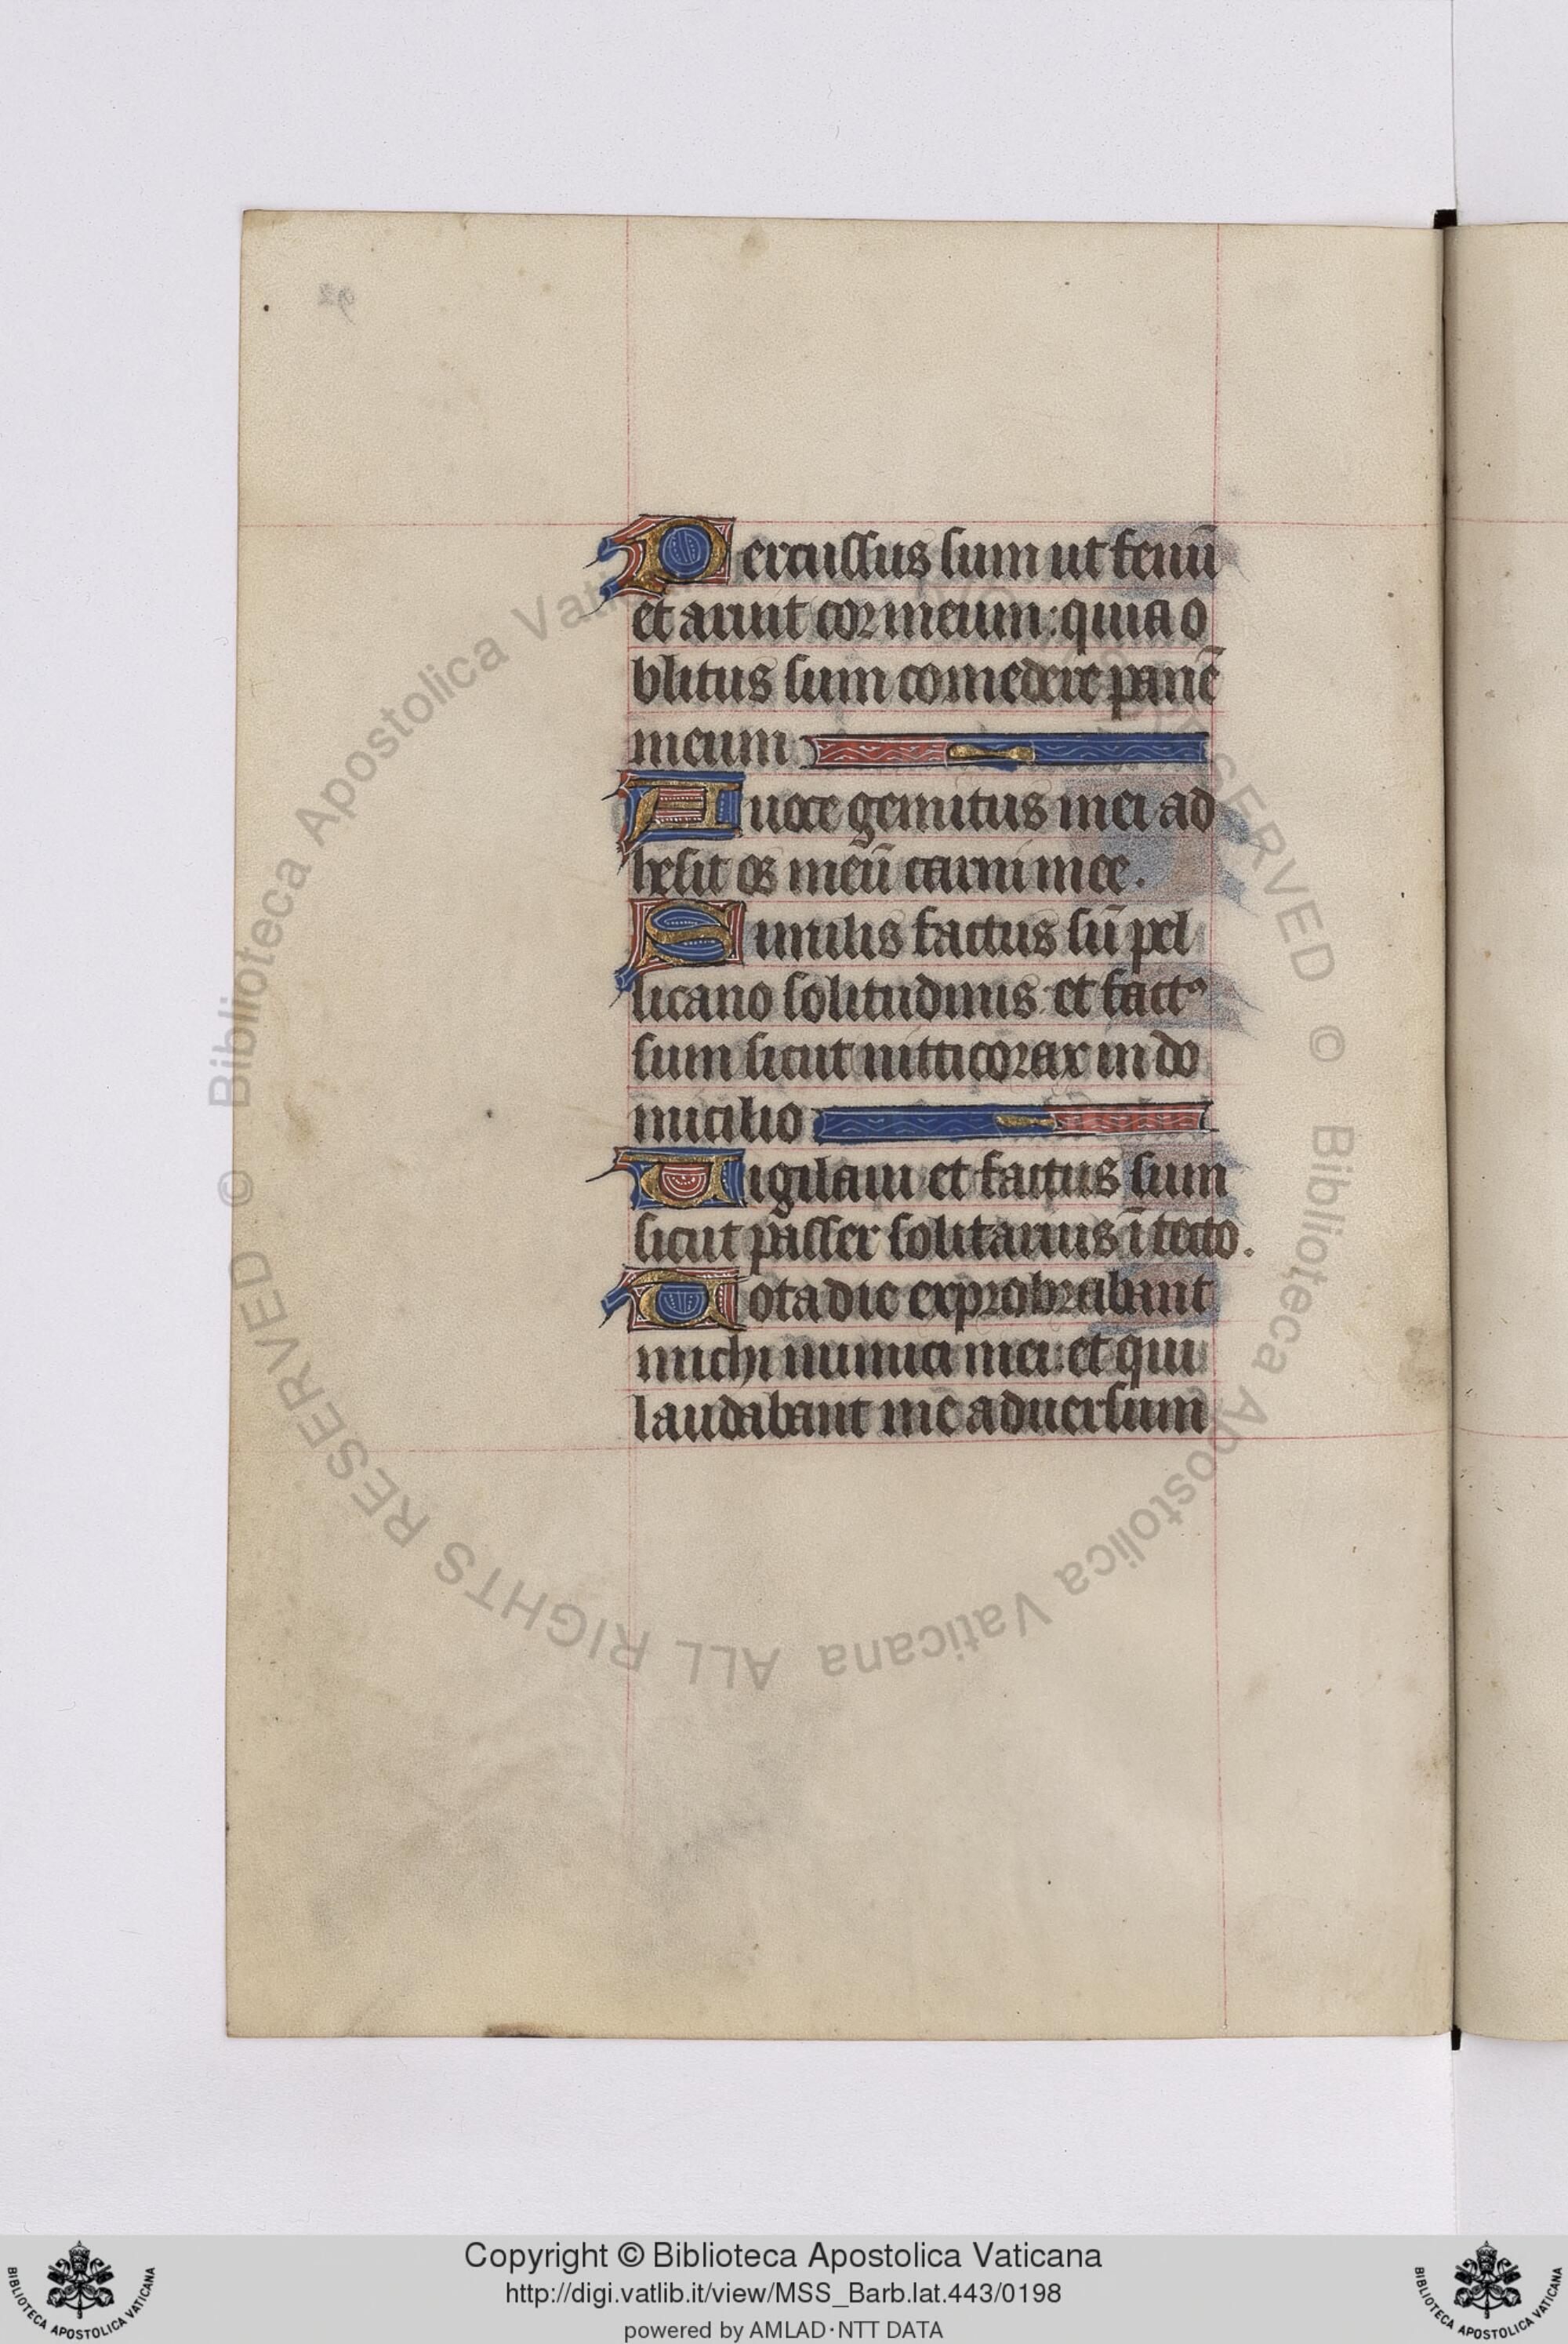 Percussus sum ut fenū
et aruit cor meum: quia o
blitus sum comedere panē
meum
A uoce gemitus mei ad
hesit os meū carni mee.
Similis factus sū pel
licano solitudinis: et factꝰ
sum sicut nitticorax in do
micilio
Uigilaui et factus sum
sicut passer solitarius ī tecto.
Tota die exprobrabant
michi inimici mei: et qui
laudabant me aduersum
© Biblioteca Apostolica Vaticana ALL RIGHTS RESERVED
© Biblioteca Apostolica Vaticana ALL RIGHTS RESERVED
Copyright © Biblioteca Apostolica Vaticana
http://digi.vatlib.it/view/MSS_Barb.lat.443/0198
powered by AMLAD·NTT DATA
BIBLIOTECA APOSTOLICA VATICANA
BIBLIOTECA APOSTOLICA VATICANA